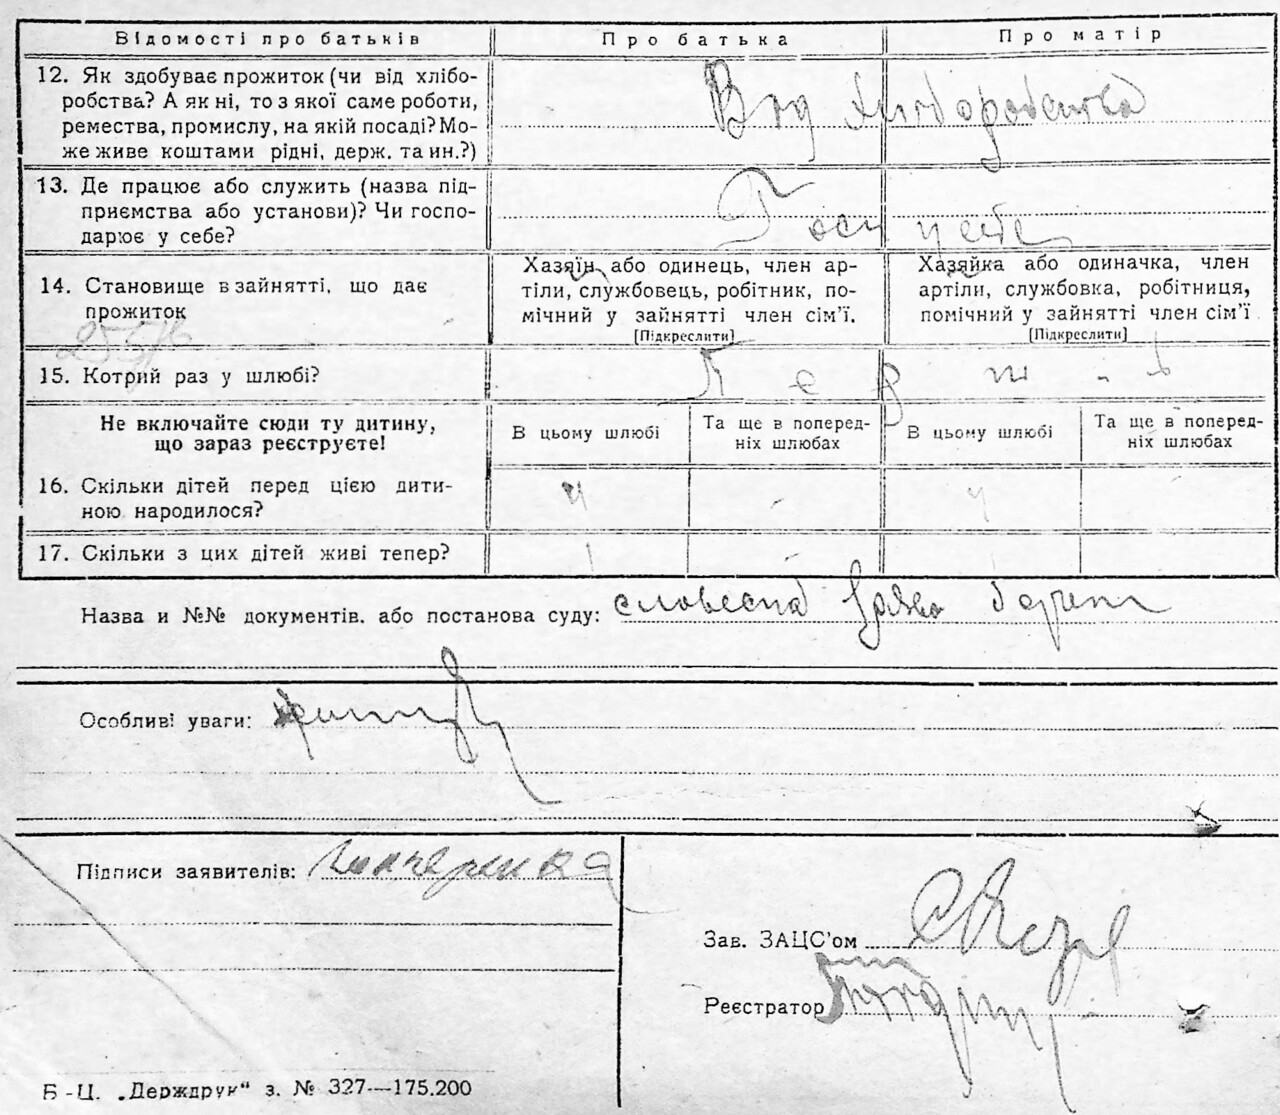 Відомості про батьків Про батька Про матір
12. Як здобуває прожиток (чи від хлібо-
робства? А як ні, то з якої саме роботи,
ремества, промислу, на якій посаді? Мо-
же живе коштами рідні, держ. та ин.?)
Від хліборобства
13. Де працює або служить (назва під-
приємства або установи)? Чи госпо-
дарює у себе?
Госп у себе
14. Становище в зайнятті, що дає
прожиток
Хазяїн або одинець, член ар-
тіли, службовець, робітник, по-
мічний у зайнятті член сім'ї.
[Підкреслити]
Хазяйка або одиначка, член
артіли, службовка, робітниця,
помічний у зайнятті член сім'ї
[Підкреслити]
15. Котрий раз у шлюбі?
Не включайте сюди ту дитину,
що зараз реєструєте!
В цьому шлюбі
Та ще в поперед-
ніх шлюбах
В цьому шлюбі
Та ще в поперед-
ніх шлюбах
16. Скільки дітей перед цією дити-
ною народилося?
4 - 4
17. Скільки з цих дітей живі тепер?
Назва и №№ документів. або постанова суду: словесна
Особливі уваги:
Підписи заявителів:
Зав. ЗАЦС'ом
Реєстратор
Б-Ц. „Держдрук“ з. № 327—175.200